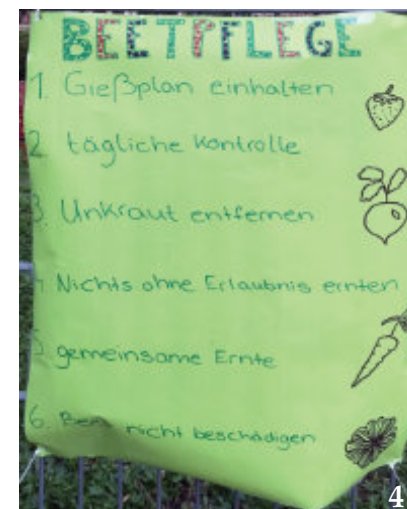 BEETPFLEGE
1. Gießplan einhalten
2. tägliche Kontrolle
3. Unkraut entfernen
4. Nichts ohne Erlaubnis ernten
5. gemeinsame Ernte
6. nicht beschädigen
4